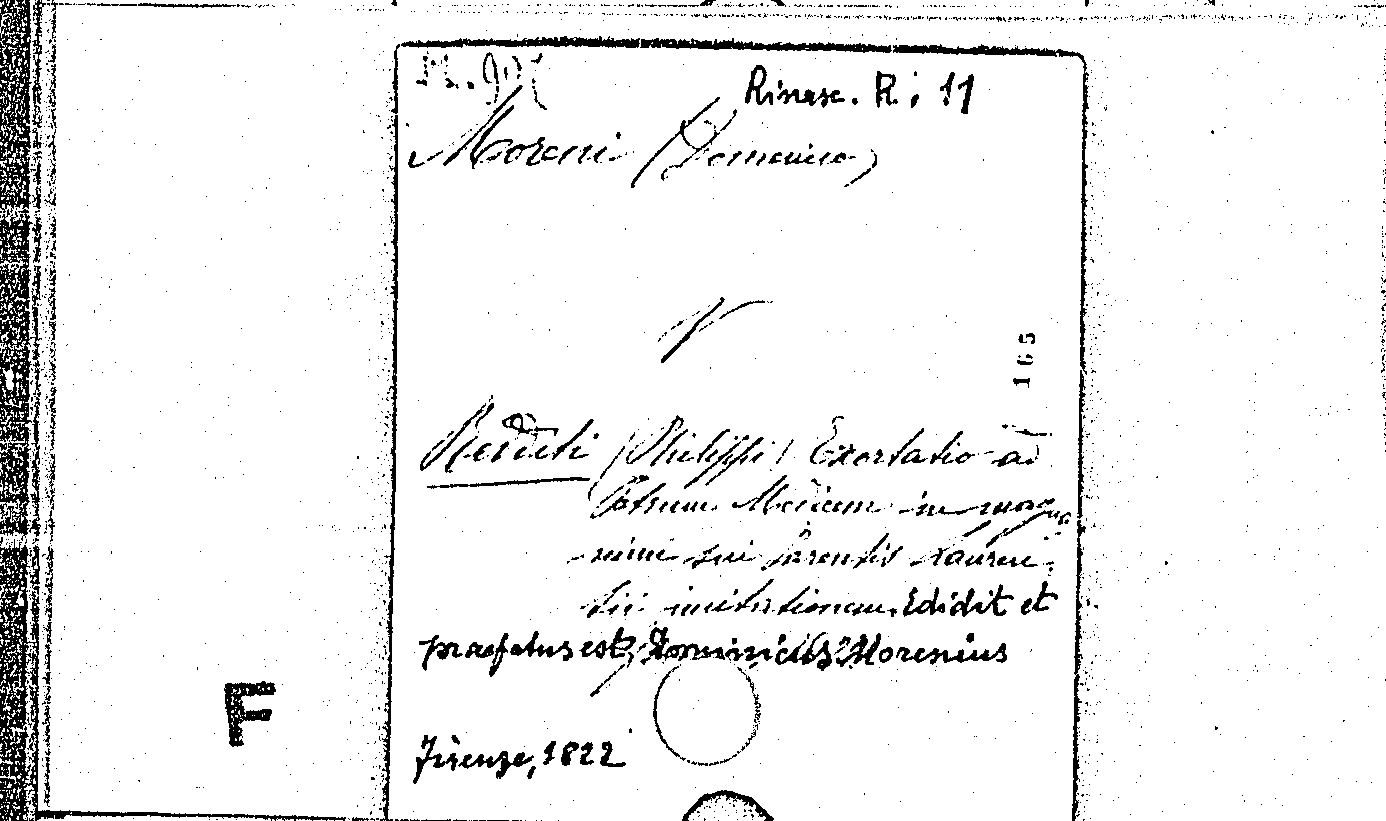 Rinasc. R. i 11
Moreni (Domenico)
165
Redditi (Philippi) Exortatio ad
Petrum Medicem in magna
nimi sui parentis Lauren
tii imitationem. Edidit et
praefatus est Dominicus Morenius
F
Firenze, 1822